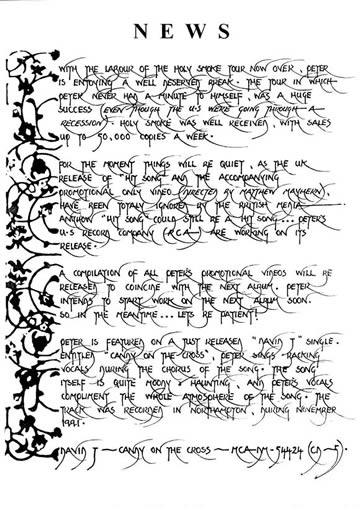 NEWS
WITH THE LABOUR OF THE HOLY SMOKE TOUR NOW OVER, PETER
IS ENJOYING A WELL DESERVED BREAK. THE TOUR IN WHICH
PETER NEVER HAD A MINUTE TO HIMSELF, WAS A HUGE
SUCCESS (EVEN THOUGH THE U.S WERE GOING THROUGH A
RECESSION). HOLY SMOKE WAS WELL RECEIVED, WITH SALES
UP TO 50,000 COPIES A WEEK.
FOR THE MOMENT THINGS WILL BE QUIET, AS THE UK
RELEASE OF "HIT SONG" AND THE ACCOMPANYING
PROMOTIONAL ONLY VIDEO (DIRECTED BY MATTHEW
HAVE BEEN TOTALY IGNORED BY THE BRITISH MEDIA
ANYHOW "HIT SONG" COULD STILL BE A HIT SONG... PETER'S
U.S RECORD COMPANY (RCA) ARE WORKING ON ITS
RELEASE.
A COMPILATION OF ALL PETER'S PROMOTIONAL VIDEOS WILL BE
RELEASED TO COINCIDE WITH THE NEXT ALBUM. PETER
INTENDS TO START WORK ON THE NEXT ALBUM SOON.
SO IN THE MEANTIME... LETS BE PATIENT!
PETER IS FEATURED ON A JUST RELEASED "DAVID J" SINGLE.
ENTITLED "CANDY ON THE CROSS", PETER SINGS BACKING
VOCALS DURING THE CHORUS OF THE SONG. THE SONG
ITSELF IS QUITE MOODY & HAUNTING, AND PETER'S VOCALS
COMPLIMENT THE WHOLE ATMOSPHERE OF THE SONG. THE
TRACK WAS RECORDED IN NORTHAMPTON, DURING NOVEMBER
1991.
DAVID J - CANDY ON THE CROSS - MCA DM - 54424 (CD - 5).